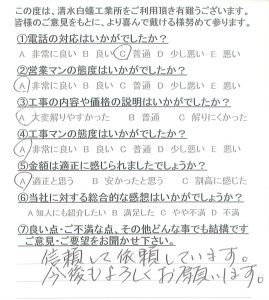 この度は、清水白蟻工業所をご利用頂き有難うございます。
皆様のご意見をもとに、より喜んで戴ける様努めて参ります。
①電話の対応はいかがでしたか？
A 非常に良い B 良い C 普通 D 少し悪い E 悪い
②営業マンの態度はいかがでしたか？
A 非常に良い B 良い C 普通 D 少し悪い E 悪い
③工事の内容や価格の説明はいかがでしたか？
A 大変解りやすかった B 普通 C 解りにくかった
④工事マンの態度はいかがでしたか？
A 非常に良い B 良い C 普通 D 少し悪い E 悪い
⑤金額は適正に感じられましたでしょうか？
A 適正と思う B 安かったと思う C 割高に感じた
⑥当社に対する総合的な感想はいかがでしょうか？
A 知人にも紹介したい B 満足した C やや不満 D 不満
⑦良い点・ご不満な点、その他どんな事でも結構です
ご意見・ご要望をお聞かせ下さい。
信頼して依頼しています。
今後もよろしくお願いします。